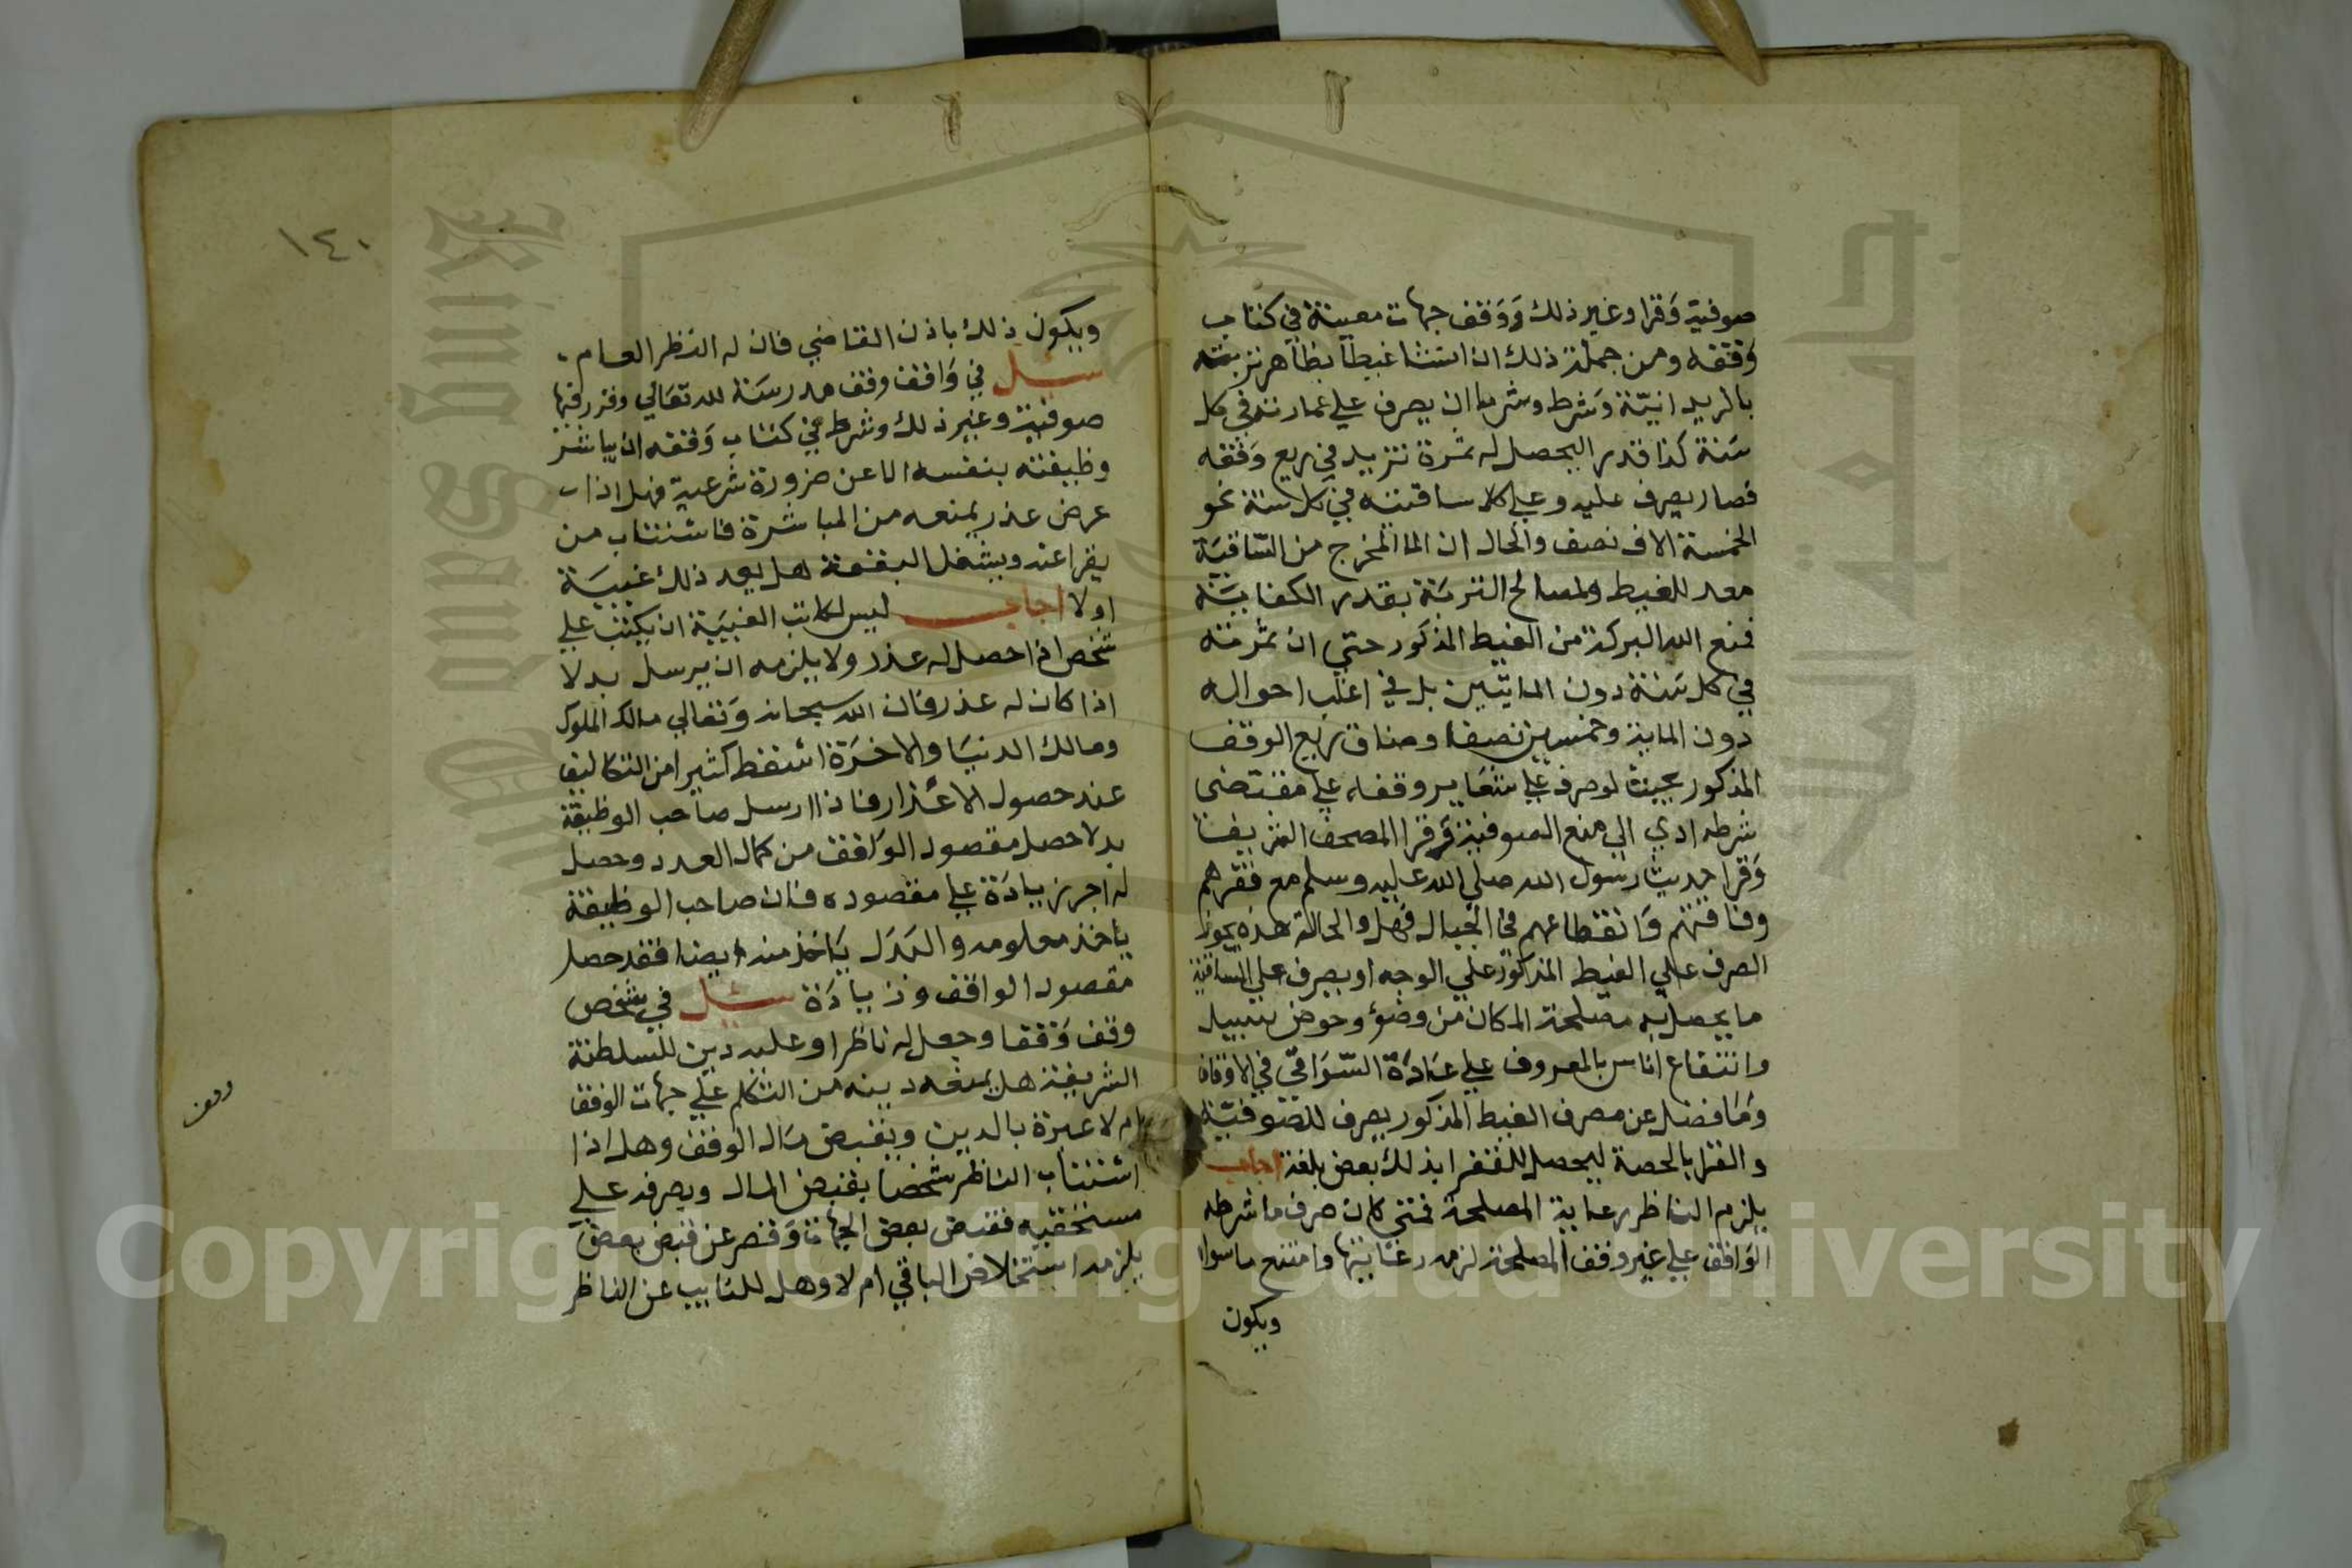 صوفية وقرا وغير ذلك ووقف جهات معينة في كتاب
وقفه ومن جملة ذلك ان انشا غيطا بظاهر تربته
بالريدانية وشرط وشرط ان يصرف علي عمارته في كل
سنة كذا قدر اليحصل له ثمرة تزيد في ريع وقفه
فصار يصرف عليه وعلي كلا ساقيته في كل سنة نحو
الخمسة الاف نصف والحال ان الما المخرج من الساقية
معد للغيط ولمصالح التربة بقدر الكفاية
فمنع الله البركة من الغيط المذكور حتي ان ثمرته
في كل سنة دون المايتين بل في اغلب احواله
دون الماية وخمسين نصفا وضاق ريع الوقف
المذكور بحيث لو صرف علي شعاير وقفه علي مقتضى
شرطه ادي الي منع الصوفية وقرا المصحف الشريف
وقرا حديث رسول الله صلي الله عليه وسلم مع فقرهم
وفاقتهم وانقطاعهم في الجبال فهل والحالة هذه يجوز
الصرف علي الغيط المذكور علي الوجه او يصرف علي الساقية
ما يحصل به مصلحة المكان من وضؤ وحوض سبيل
وانتفاع اناس بالمعروف علي عادة السواقي في الاوقاف
وما فضل عن مصرف الغيط المذكور يصرف للصوفية
والقرا بالحصة ليحصل للفقرا بذلك بعض بلغة اجاب
يلزم الناظر رعاية المصلحة فمتي كان صرف ما شرطه
الواقف علي غير وفق المصلحة لزمه رعايتها وامتنع ما سواه
ويكون
١٤٠
ويكون ذلك باذن القاضي فان له النظر العام
سئل في واقف وقف مدرسة لله تعالي وقرر فيها
صوفية وغير ذلك وشرط في كتاب وقفه ان يباشر
وظيفته بنفسه الا عن ضرورة شرعية فهل اذا
عرض عذر يمنعه من المباشرة فاستناب من
يقرا عنه ويشغل البقعة هل يعد ذلك غيبة
اولا اجاب ليس لكاتب الغيبة ان يكتب علي
شخص اذا حصل له عذر ولا يلزمه ان يرسل بدلا
اذا كان له عذر فان الله سبحانه وتعالي مالك الملوك
ومالك الدنيا والاخرة اسقط كثيرا من التكاليف
عند حصول الاعذار فاذا ارسل صاحب الوظيفة
بدلا حصل مقصود الواقف من كمال العدد وحصل
له اجر زيادة علي مقصوده فان صاحب الوظيفة
ياخذ معلومه والبدل ياخذ منه ايضا فقد حصل
مقصود الواقف وزيادة سئل في شخص
وقف وقفا وجعل له ناظرا وعليه دين للسلطنة
الشريفة هل يمنعه دينه من التكلم علي جهات الوقف
ام لا عبرة بالدين ويقبض مال الوقف وهل اذا
استناب الناظر شخصا بقبض المال ويصرفه علي
مستحقيه فقبض بعض الجهات وقصر عن قبض بعض
يلزمه استخلاص الباقي ام لا وهل للنايب عن الناظر
وقف
Copyright © King Saud University